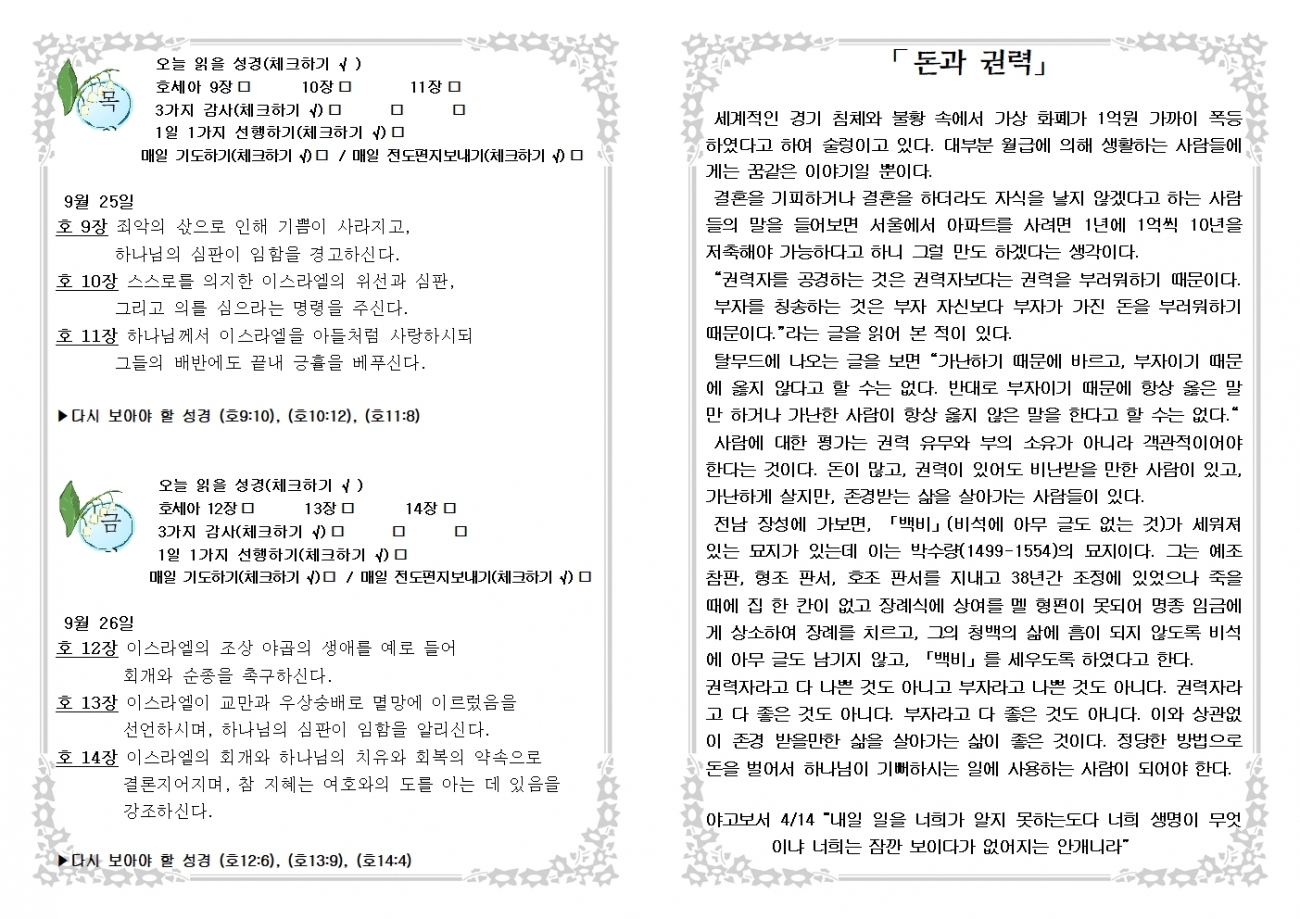 오늘 읽을 성경(체크하기 √ )
목
호세아 9장 □ 10장 □ 11장 □
3가지 감사(체크하기 √) □ □ □
1일 1가지 선행하기(체크하기 √) □
매일 기도하기(체크하기 √) □ / 매일 전도편지보내기(체크하기 √) □
9월 25일
호 9장 죄악의 삯으로 인해 기쁨이 사라지고,
하나님의 심판이 임함을 경고하신다.
호 10장 스스로를 의지한 이스라엘의 위선과 심판,
그리고 의를 심으라는 명령을 주신다.
호 11장 하나님께서 이스라엘을 아들처럼 사랑하시되
그들의 배반에도 끝내 긍휼을 베푸신다.
▶다시 보아야 할 성경 (호9:10), (호10:12), (호11:8)
오늘 읽을 성경(체크하기 √ )
금
호세아 12장 □ 13장 □ 14장 □
3가지 감사(체크하기 √) □ □ □
1일 1가지 선행하기(체크하기 √) □
매일 기도하기(체크하기 √) □ / 매일 전도편지보내기(체크하기 √) □
9월 26일
호 12장 이스라엘의 조상 야곱의 생애를 예로 들어
회개와 순종을 촉구하신다.
호 13장 이스라엘이 교만과 우상숭배로 멸망에 이르렀음을
선언하시며, 하나님의 심판이 임함을 알리신다.
호 14장 이스라엘의 회개와 하나님의 치유와 회복의 약속으로
결론지어지며, 참 지혜는 여호와의 도를 아는 데 있음을
강조하신다.
▶다시 보아야 할 성경 (호12:6), (호13:9), (호14:4)
「 돈과 권력」
세계적인 경기 침체와 불황 속에서 가상 화폐가 1억원 가까이 폭등
하였다고 하여 술렁이고 있다. 대부분 월급에 의해 생활하는 사람들에
게는 꿈같은 이야기일 뿐이다.
결혼을 기피하거나 결혼을 하더라도 자식을 낳지 않겠다고 하는 사람
들의 말을 들어보면 서울에서 아파트를 사려면 1년에 1억씩 10년을
저축해야 가능하다고 하니 그럴 만도 하겠다는 생각이다.
“권력자를 공경하는 것은 권력자보다는 권력을 부러워하기 때문이다.
부자를 칭송하는 것은 부자 자신보다 부자가 가진 돈을 부러워하기
때문이다.”라는 글을 읽어 본 적이 있다.
탈무드에 나오는 글을 보면 “가난하기 때문에 바르고, 부자이기 때문
에 옳지 않다고 할 수는 없다. 반대로 부자이기 때문에 항상 옳은 말
만 하거나 가난한 사람이 항상 옳지 않은 말을 한다고 할 수는 없다.“
사람에 대한 평가는 권력 유무와 부의 소유가 아니라 객관적이어야
한다는 것이다. 돈이 많고, 권력이 있어도 비난받을 만한 사람이 있고,
가난하게 살지만, 존경받는 삶을 살아가는 사람들이 있다.
전남 장성에 가보면, 「백비」(비석에 아무 글도 없는 것)가 세워져
있는 묘지가 있는데 이는 박수량(1499-1554)의 묘지이다. 그는 예조
참판, 형조 판서, 호조 판서를 지내고 38년간 조정에 있었으나 죽을
때에 집 한 칸이 없고 장례식에 상여를 멜 형편이 못되어 명종 임금에
게 상소하여 장례를 치르고, 그의 청백의 삶에 흠이 되지 않도록 비석
에 아무 글도 남기지 않고, 「백비」를 세우도록 하였다고 한다.
권력자라고 다 나쁜 것도 아니고 부자라고 나쁜 것도 아니다. 권력자라
고 다 좋은 것도 아니다. 부자라고 다 좋은 것도 아니다. 이와 상관없
이 존경 받을만한 삶을 살아가는 삶이 좋은 것이다. 정당한 방법으로
돈을 벌어서 하나님이 기뻐하시는 일에 사용하는 사람이 되어야 한다.
야고보서 4/14 "내일 일을 너희가 알지 못하는도다 너희 생명이 무엇
이냐 너희는 잠깐 보이다가 없어지는 안개니라”